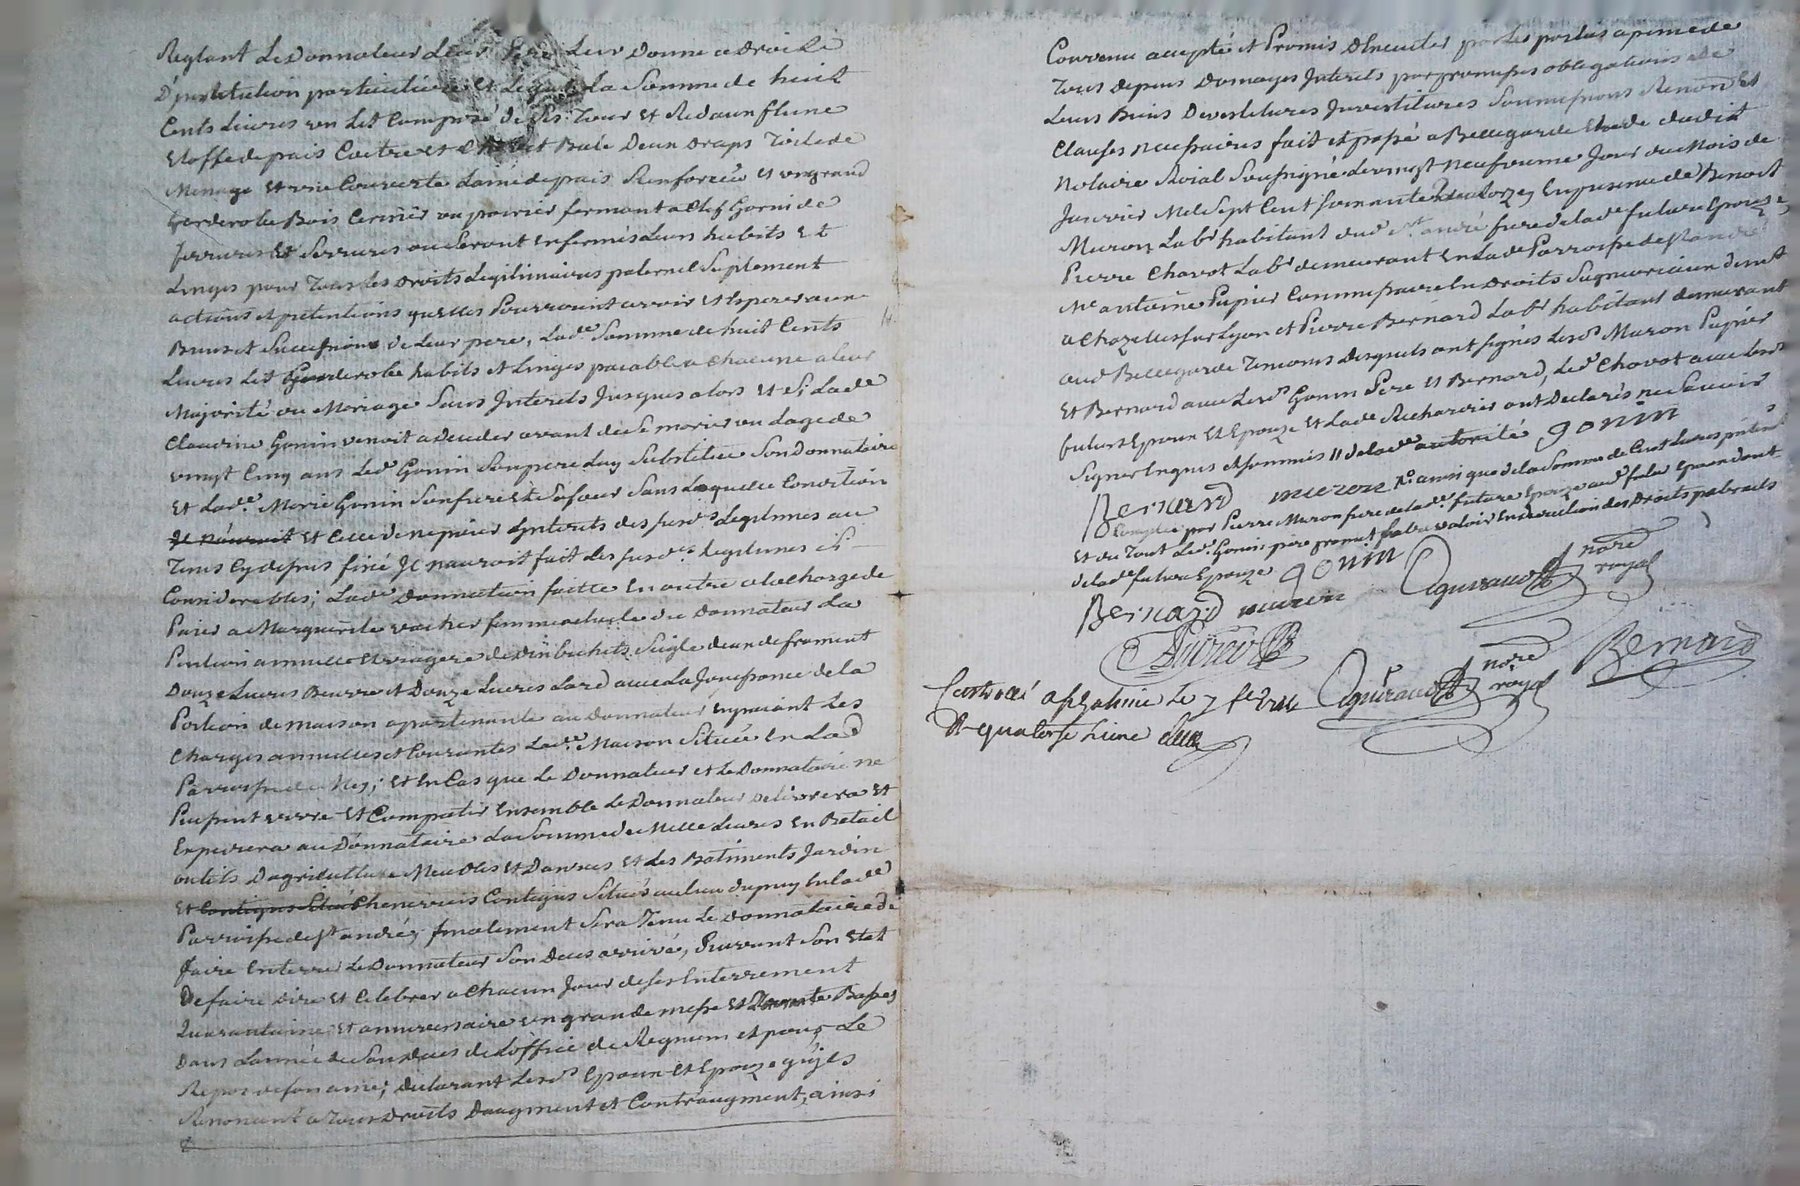 Reglant Le Donnateur Leur Pere Leur Donne a Droit
D'institution particuliere Et Legat La Somme de huit
Cents Livres un Lit Composé de Ses Tour Et Redaun flune
Etoffe de pais Coitre et Bale Deux Draps Toile de
Menage Et une Couverte Laine de pais Renforcée Et un grand
Garderobe Bois Cerisier ou poirier fermant a Clef Garni de
ferrures Et Serrures ou Seront Enfermés Leurs habits Et
Linges pour Tous Les Droits Legitimaires paternel Suplement
actions et pretentions quelles Pourroient avoir et Esperer aux
Biens et Successions de Leur pere, Lade Somme de huit Cents
Livres Lit Garderobe habits et Linges paiable a Chacune a leur
Majorité ou Mariage Sans Interets Jusques alors Et Si Lade
Claudine Gonin venoit a Deceder avant de Se marier ou Lage de
vingt Cinq ans Led Gonin Son pere Luy Substitue Son Donnataire
Et Lade Marie Gonin Son frere Et Sa Soeur Sans Laquelle Condition
Et Celle de ne paier Interets des Susds Legitimes au
Tems Cy dessus fixé Il nauroit fait Les Susdes Legitimes Si
Considerables; Lade Donnation faitte En outre a la Charge de
Paier a Marguerite vacher femme actuelle du Donnateur La
Pention annuelle Et viagere de Dix bichets Seigle deux de froment
Douze Livres Beurre et Douze Livres Lard avec La Jouissance de la
Portion de maison apartenante au Donnateur En paiant Les
Charges annuelles et Courantes Lade Maison Située En Lad
Parroisse de; Et En Cas que Le Donnateur et Le Donnataire ne
Puissent vivre Et Compatir Ensemble Le Donnateur Delivrera Et
Expediera au Donnataire La Somme de Mille Livres En Betail
outils Dagriculture Meubles Et Danrées Et Les Batiments Jardin
Et Contigus Situé Chenevriers Contigus Situés au Lieu Dupuy En Lade
Parroisse de St andré; finalement Sera Tenu Le Donnataire de
faire Enterrer Le Donnateur Son Deces arrivé, Suivant Son Etat
De faire Dire Et Celebrer a Chacun Jour de Ses Enterrement
Quarantaine Et anniversaire une grande messe Et Trente Basses
Dans Lannée de Son Deces de Loffice de Requiem et pour Le
Repos de Son ame; Declarant Lesds Epoux Et Epouze quils
Renoncent a Tous Droits Daugment et Contraugment, ainsi
Convenu accepté et Promis Dexecuter par Les parties a peine de
Tous Depens Domages Interets par promesses obligations de
Leurs Biens Devestitures Investitures Soumissions Renon Et
Clauses necessaires fait et passé a Bellegarde Etude dudit
Notaire Roial Soussigné Le vingt neufvieme Jour du Mois de
Janvier Mil Sept Cent Soixante Quatorze En presence de Benoit
Muron Labr habitant aud St andré frere de lade future Epouze
Pierre Chavot Labr demeurant En Lade Parroisse de St andré
Me antoine Pupier Commissaire En Droits Seigneuriaux demt
a Chazelles sur Lyon et Pierre Bernard Labr habitant demeurant
aud Bellegarde Temoins Desquels ont Signés Lesds Muron Pupier
Et Bernard avec Lesds Gonin Pere Et Bernard, Led Chavot avec Lesds
futurs Epoux Et Epouze Et Lade ont Declarés ne Savoir
Signer Enquis et Sommés // de lade autorité gonin
Bernard muron ainsi que de la Somme de Cent Livres
Comptée par Pierre Muron frere de lade future Epouze
Et du Tout Led Gonin pere promet faire valoir En deduction des Droits paternels
de lade future Epouze gonin
Bernard muron Aguiraud nore royal
Pupier
Aguiraud nore royal Bernard
Controllé a St Galmier Le 7 fevrier
R quatorze Livres